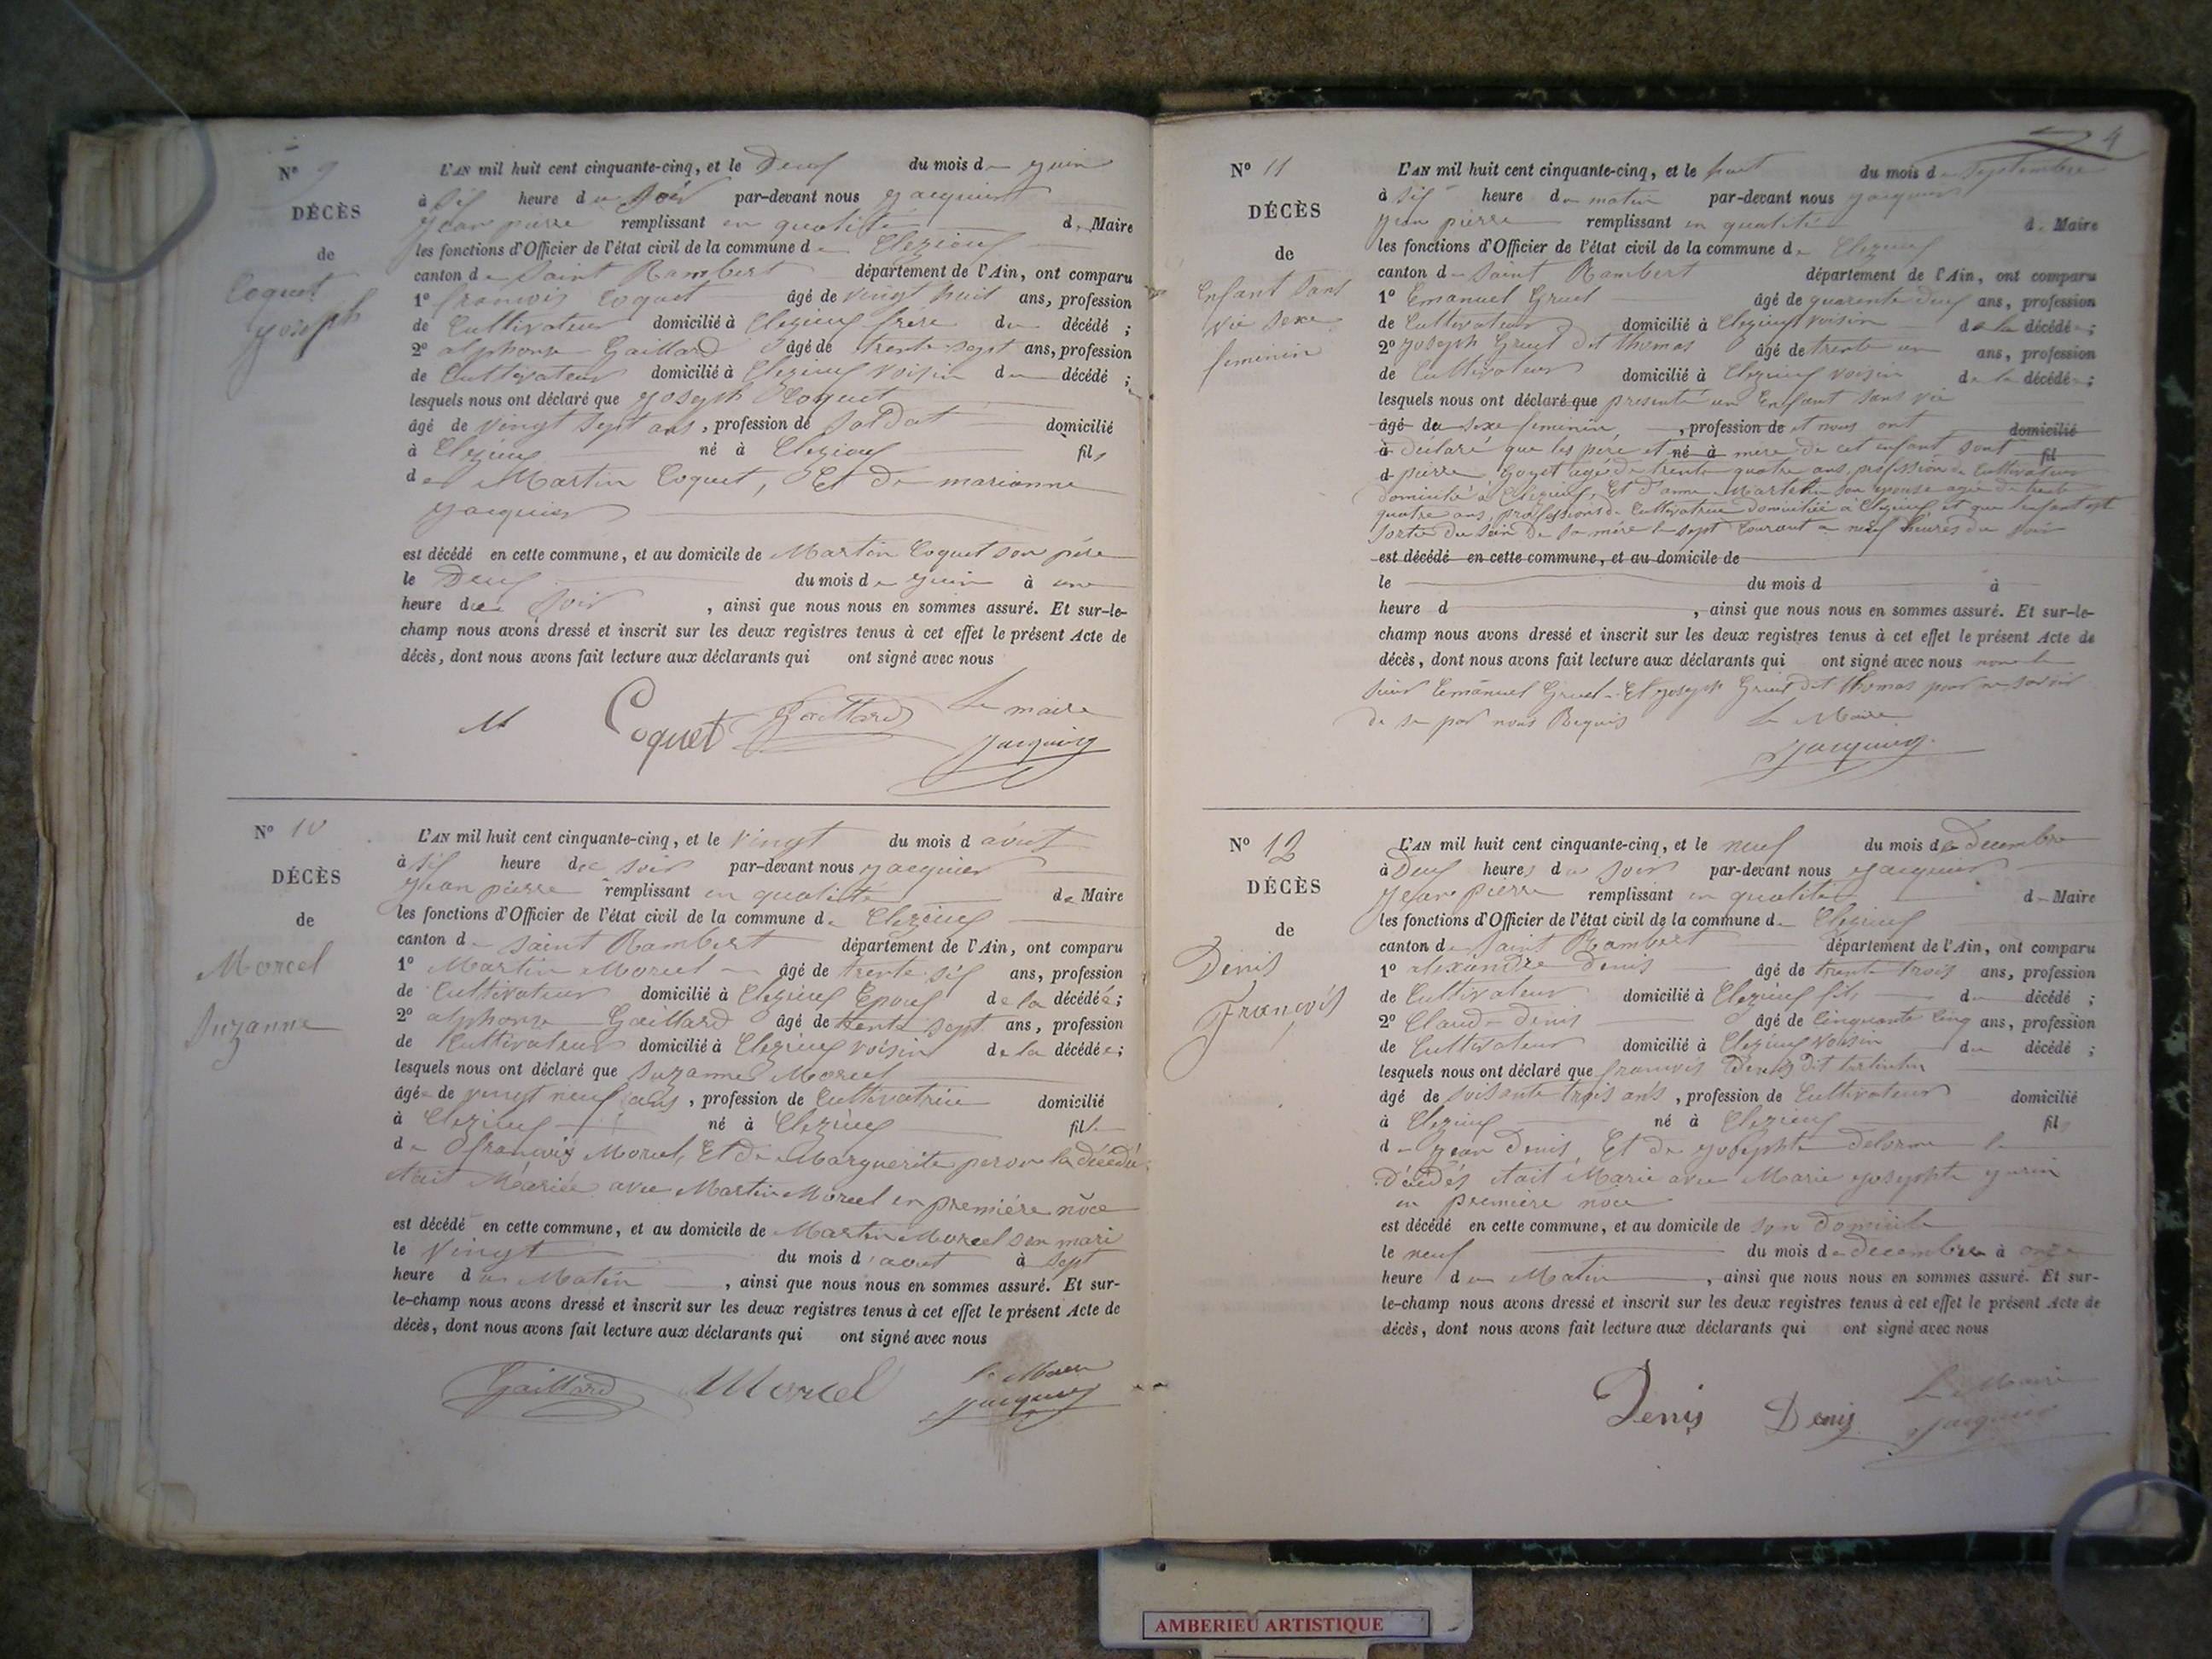 Nº 9
DÉCÈS
de
Coquet
joseph
L'AN mil huit cent cinquante-cinq, et le Deux du mois de juin
à six heure du soir par-devant nous jacquier
jean pierre remplissant en qualitité de Maire
les fonctions d'Officier de l'état civil de la commune de Clezieux
canton de Saint Rambert département de l'Ain, ont comparu
1º francois Coquet âgé de vingt huit ans, profession
de Cultivateur domicilié à Clezieux frère du décédé ;
2º alphonse Gaillard âgé de trente sept ans, profession
de Cultivateur domicilié à Clezieux voisin du décédé ;
lesquels nous ont déclaré que joseph Coquet
âgé de vingt sept ans, profession de Soldat domicilié
à Clezieux né à Clezieux fils
de Martin Coquet, Et de marianne
jacquier
est décédé en cette commune, et au domicile de Martin Coquet son père
le Deux du mois de juin à une
heure du soir, ainsi que nous nous en sommes assuré. Et sur-le-
champ nous avons dressé et inscrit sur les deux registres tenus à cet effet le présent Acte de
décès, dont nous avons fait lecture aux déclarants qui ont signé avec nous
M Coquet Gaillard Le maire
jacquier
Nº 10
DÉCÈS
de
Morcel
Suzanne
L'AN mil huit cent cinquante-cinq, et le vingt du mois d août
à six heure du soir par-devant nous jacquier
jean pierre remplissant en qualitité de Maire
les fonctions d'Officier de l'état civil de la commune de Clezieux
canton de Saint Rambert département de l'Ain, ont comparu
1º Martin Morcel âgé de trente six ans, profession
de Cultivateur domicilié à Clezieux Epoux de la décédée ;
2º alphonse Gaillard âgé de trente sept ans, profession
de Cultivateur domicilié à Clezieux voisin de la décédée ;
lesquels nous ont déclaré que Suzanne Morcel
âgée de vingt neuf ans, profession de Cultivatrice domicilié
à Clezieux né à Clezieux fille
de francois Morcel, Et de Marguerite la décédée
était Mariée avec Martin Morcel en première nôce
est décédé en cette commune, et au domicile de Martin Morcel son mari
le Vingt du mois d'aout à sept
heure du Matin, ainsi que nous nous en sommes assuré. Et sur-
le-champ nous avons dressé et inscrit sur les deux registres tenus à cet effet le présent Acte de
décès, dont nous avons fait lecture aux déclarants qui ont signé avec nous
Gaillard Morcel le Maire
jacquier
4
Nº 11
DÉCÈS
de
Enfant sans
vie sexe
feminin
L'AN mil huit cent cinquante-cinq, et le huit du mois de septembre
à six heure du matin par-devant nous jacquier
jean pierre remplissant en qualité de Maire
les fonctions d'Officier de l'état civil de la commune de Clezieux
canton de Saint Rambert département de l'Ain, ont comparu
1º Emanuel Gruel âgé de quarente deux ans, profession
de Cultivateur domicilié à Clezieux voisin de la décédé ;
2º joseph Gruel dit thomas âgé de trente un ans, profession
de Cultivateur domicilié à Clezieux voisin de la décédé ;
lesquels nous ont déclaré que presenté un Enfant sans vie
âgé de sexe feminin, profession de et nous ont domicilié
à déclaré que les père et né à mere de cet enfant sont fil
d pierre Goyet agé de trente quatre ans, profession de Cultivateur
domicilié à Clezieux, Et d'anne son epouse agée de trente
quatre ans, profession de Cultivatrice domiciliée à Clezieux et que l'enfant est
sortie du sein de sa mère le sept Courant a neuf heures du soir
est décédé en cette commune, et au domicile de
le du mois d à
heure d, ainsi que nous nous en sommes assuré. Et sur-le-
champ nous avons dressé et inscrit sur les deux registres tenus à cet effet le présent Acte de
décès, dont nous avons fait lecture aux déclarants qui ont signé avec nous non le
sieur Emanuel Gruel Et joseph Gruel dit thomas pour ne savoir
de se par nous Requis Le Maire
jacquier
Nº 12
DÉCÈS
de
Denis
François
L'AN mil huit cent cinquante-cinq, et le neuf du mois de Decembre
à Deux heures du soir par-devant nous jacquier
jean pierre remplissant en qualité de Maire
les fonctions d'Officier de l'état civil de la commune de Clezieux
canton de Saint Rambert département de l'Ain, ont comparu
1º alexandre denis âgé de trente trois ans, profession
de Cultivateur domicilié à Clezieux fils du décédé ;
2º Claude denis âgé de Cinquante Cinq ans, profession
de Cultivateur domicilié à Clezieux Voisin du décédé ;
lesquels nous ont déclaré que francois Denis dit
âgé de soisante trois ans, profession de Cultivateur domicilié
à Clezieux né à Clezieux fils
de jean Denis, Et de josephte delorme le
Décédés était Marié avec Marie josephte
en première nôce
est décédé en cette commune, et au domicile de son domicile
le neuf du mois de decembre à onze
heure du Matin, ainsi que nous nous en sommes assuré. Et sur-
le-champ nous avons dressé et inscrit sur les deux registres tenus à cet effet le présent Acte de
décès, dont nous avons fait lecture aux déclarants qui ont signé avec nous
Denis Denis Le Maire
jacquier
AMBERIEU ARTISTIQUE